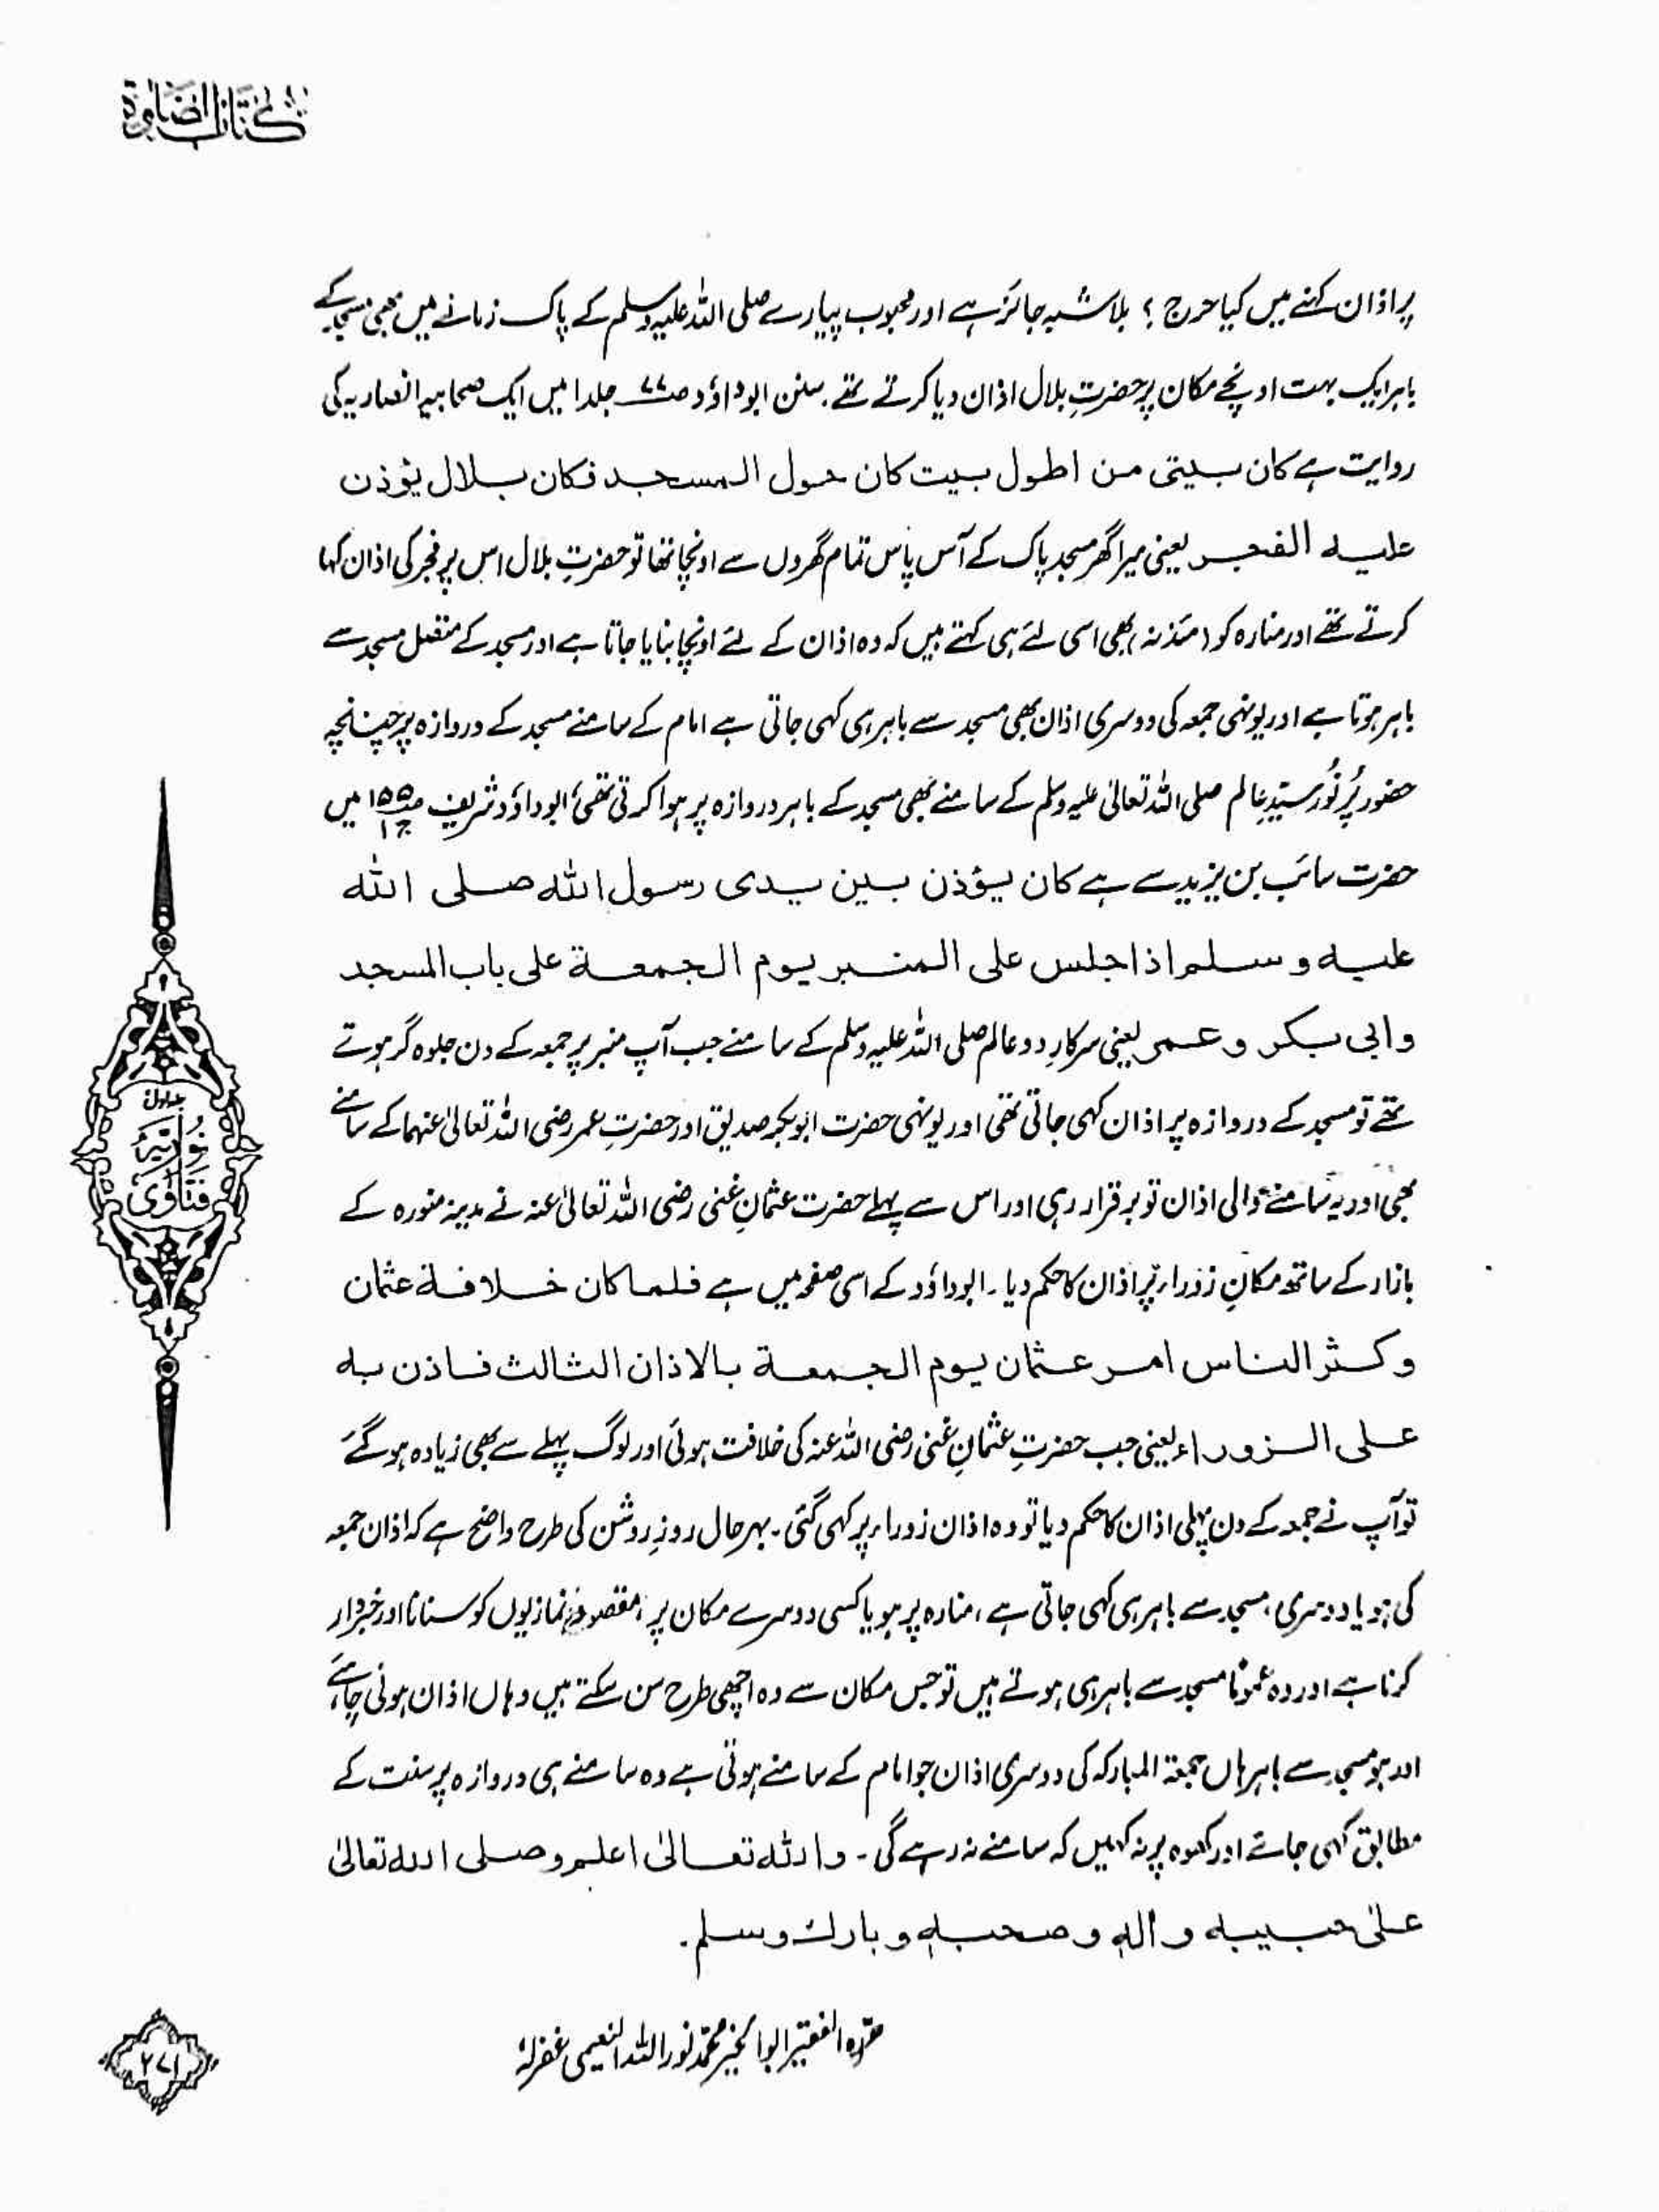 کتاب الصلوٰة
پر اذان کہنے میں کیا حرج ؟ بلاشبہ جائز ہے اور محبوب پیارے صلی اللہ علیہ وسلم کے پاک زمانے میں بھی مسجد کے
باہر ایک بہت اونچے مکان پر حضرتِ بلال اذان دیا کرتے تھے۔ سنن ابوداؤد صـ۷۷ جلد ا میں ایک صحابیہ انصاریہ کی
روایت ہے کان بیتی من اطول بیت کان حول المسجد فکان بلال یؤذن
علیہ الفجر یعنی میرا گھر مسجد پاک کے آس پاس تمام گھروں سے اونچا تھا تو حضرتِ بلال اس پر فجر کی اذان کہا
کرتے تھے اور منارہ کو (مئذنہ) بھی اسی لئے ہی کہتے ہیں کہ وہ اذان کے لئے اونچا بنایا جاتا ہے اور مسجد کے متصل مسجد سے
باہر ہوتا ہے اور یونہی جمعہ کی دوسری اذان بھی مسجد سے باہر ہی کہی جاتی ہے امام کے سامنے مسجد کے دروازہ پر چنانچہ
حضور پُر نُور سیّدِ عالم صلی اللہ تعالیٰ علیہ وسلم کے سامنے بھی مسجد کے باہر دروازہ پر ہوا کرتی تھی، ابوداؤد شریف صـ۱۵۵ ج۱ میں
حضرت سائب بن یزید سے ہے کان یؤذن بین یدی رسول اللہ صلی اللہ
علیہ وسلم اذا جلس علی المنبر یوم الجمعة علی باب المسجد
وابی بکر وعمر یعنی سرکارِ دو عالم صلی اللہ علیہ وسلم کے سامنے جب آپ منبر پر جمعہ کے دن جلوہ گر ہوتے
تھے تو مسجد کے دروازہ پر اذان کہی جاتی تھی اور یونہی حضرت ابوبکر صدیق اور حضرتِ عمر رضی اللہ تعالیٰ عنہما کے سامنے
بھی اور یہ سامنے والی اذان تو برقرار رہی اور اس سے پہلے حضرت عثمانِ غنی رضی اللہ تعالیٰ عنہ نے مدینہ منورہ کے
بازار کے ساتھ مکانِ زوراء پر اذان کا حکم دیا۔ ابوداؤد کے اسی صفحہ میں ہے فلما کان خلافة عثمان
وکثر الناس امر عثمان یوم الجمعة بالاذان الثالث فاذن بہ
علی الزوراء یعنی جب حضرتِ عثمانِ غنی رضی اللہ عنہ کی خلافت ہوئی اور لوگ پہلے سے بھی زیادہ ہو گئے
تو آپ نے جمعہ کے دن پہلی اذان کا حکم دیا تو وہ اذان زوراء پر کہی گئی۔ بہرحال روزِ روشن کی طرح واضح ہے کہ اذان جمعہ
کی ہو یا دوسری، مسجد سے باہر ہی کہی جاتی ہے، منارہ پر ہو یا کسی دوسرے مکان پر، مقصود نمازیوں کو سنانا اور خبردار
کرنا ہے اور وہ عموماً مسجد سے باہر ہی ہوتے ہیں تو جس مکان سے وہ اچھی طرح سن سکتے ہیں وہاں اذان ہونی چاہئے
اور ہو مسجد سے باہر ہاں جمعۃ المبارکہ کی دوسری اذان جو امام کے سامنے ہوتی ہے وہ سامنے ہی دروازہ پر سنت کے
مطابق کہی جائے اور کھوہ پر نہ کہیں کہ سامنے نہ رہے گی۔ واللہ تعالیٰ اعلم وصلی اللہ تعالیٰ
علیٰ حبیبہ واٰلہٖ وصحبہٖ وبارک وسلم۔
حرّرہ الفقیر ابوالخیر محمّد نور اللہ النعیمی غفرلہٗ
جلد اول
نُوریّہ
فتاوٰی
۲۷۱